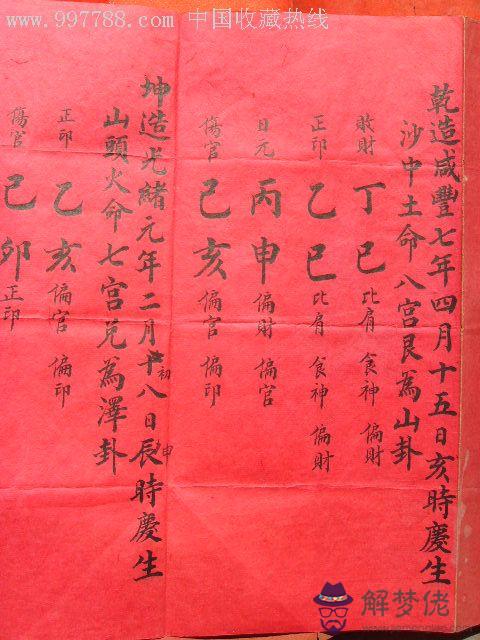 www.997788.com 中国收藏热线
乾造咸豐七年四月十五日亥時慶生
沙中土命八宫艮為山卦
敗財 丁巳 比肩 食神 偏財
正印 乙巳 比肩 食神 偏財
日元 丙申 偏財 偏官
傷官 己亥 偏官 偏印
坤造光緒元年二月十八日辰時慶生
初
申
山頭火命七宫兌為澤卦
正印 乙亥 偏官 偏印
傷官 己卯 正印
解梦佬